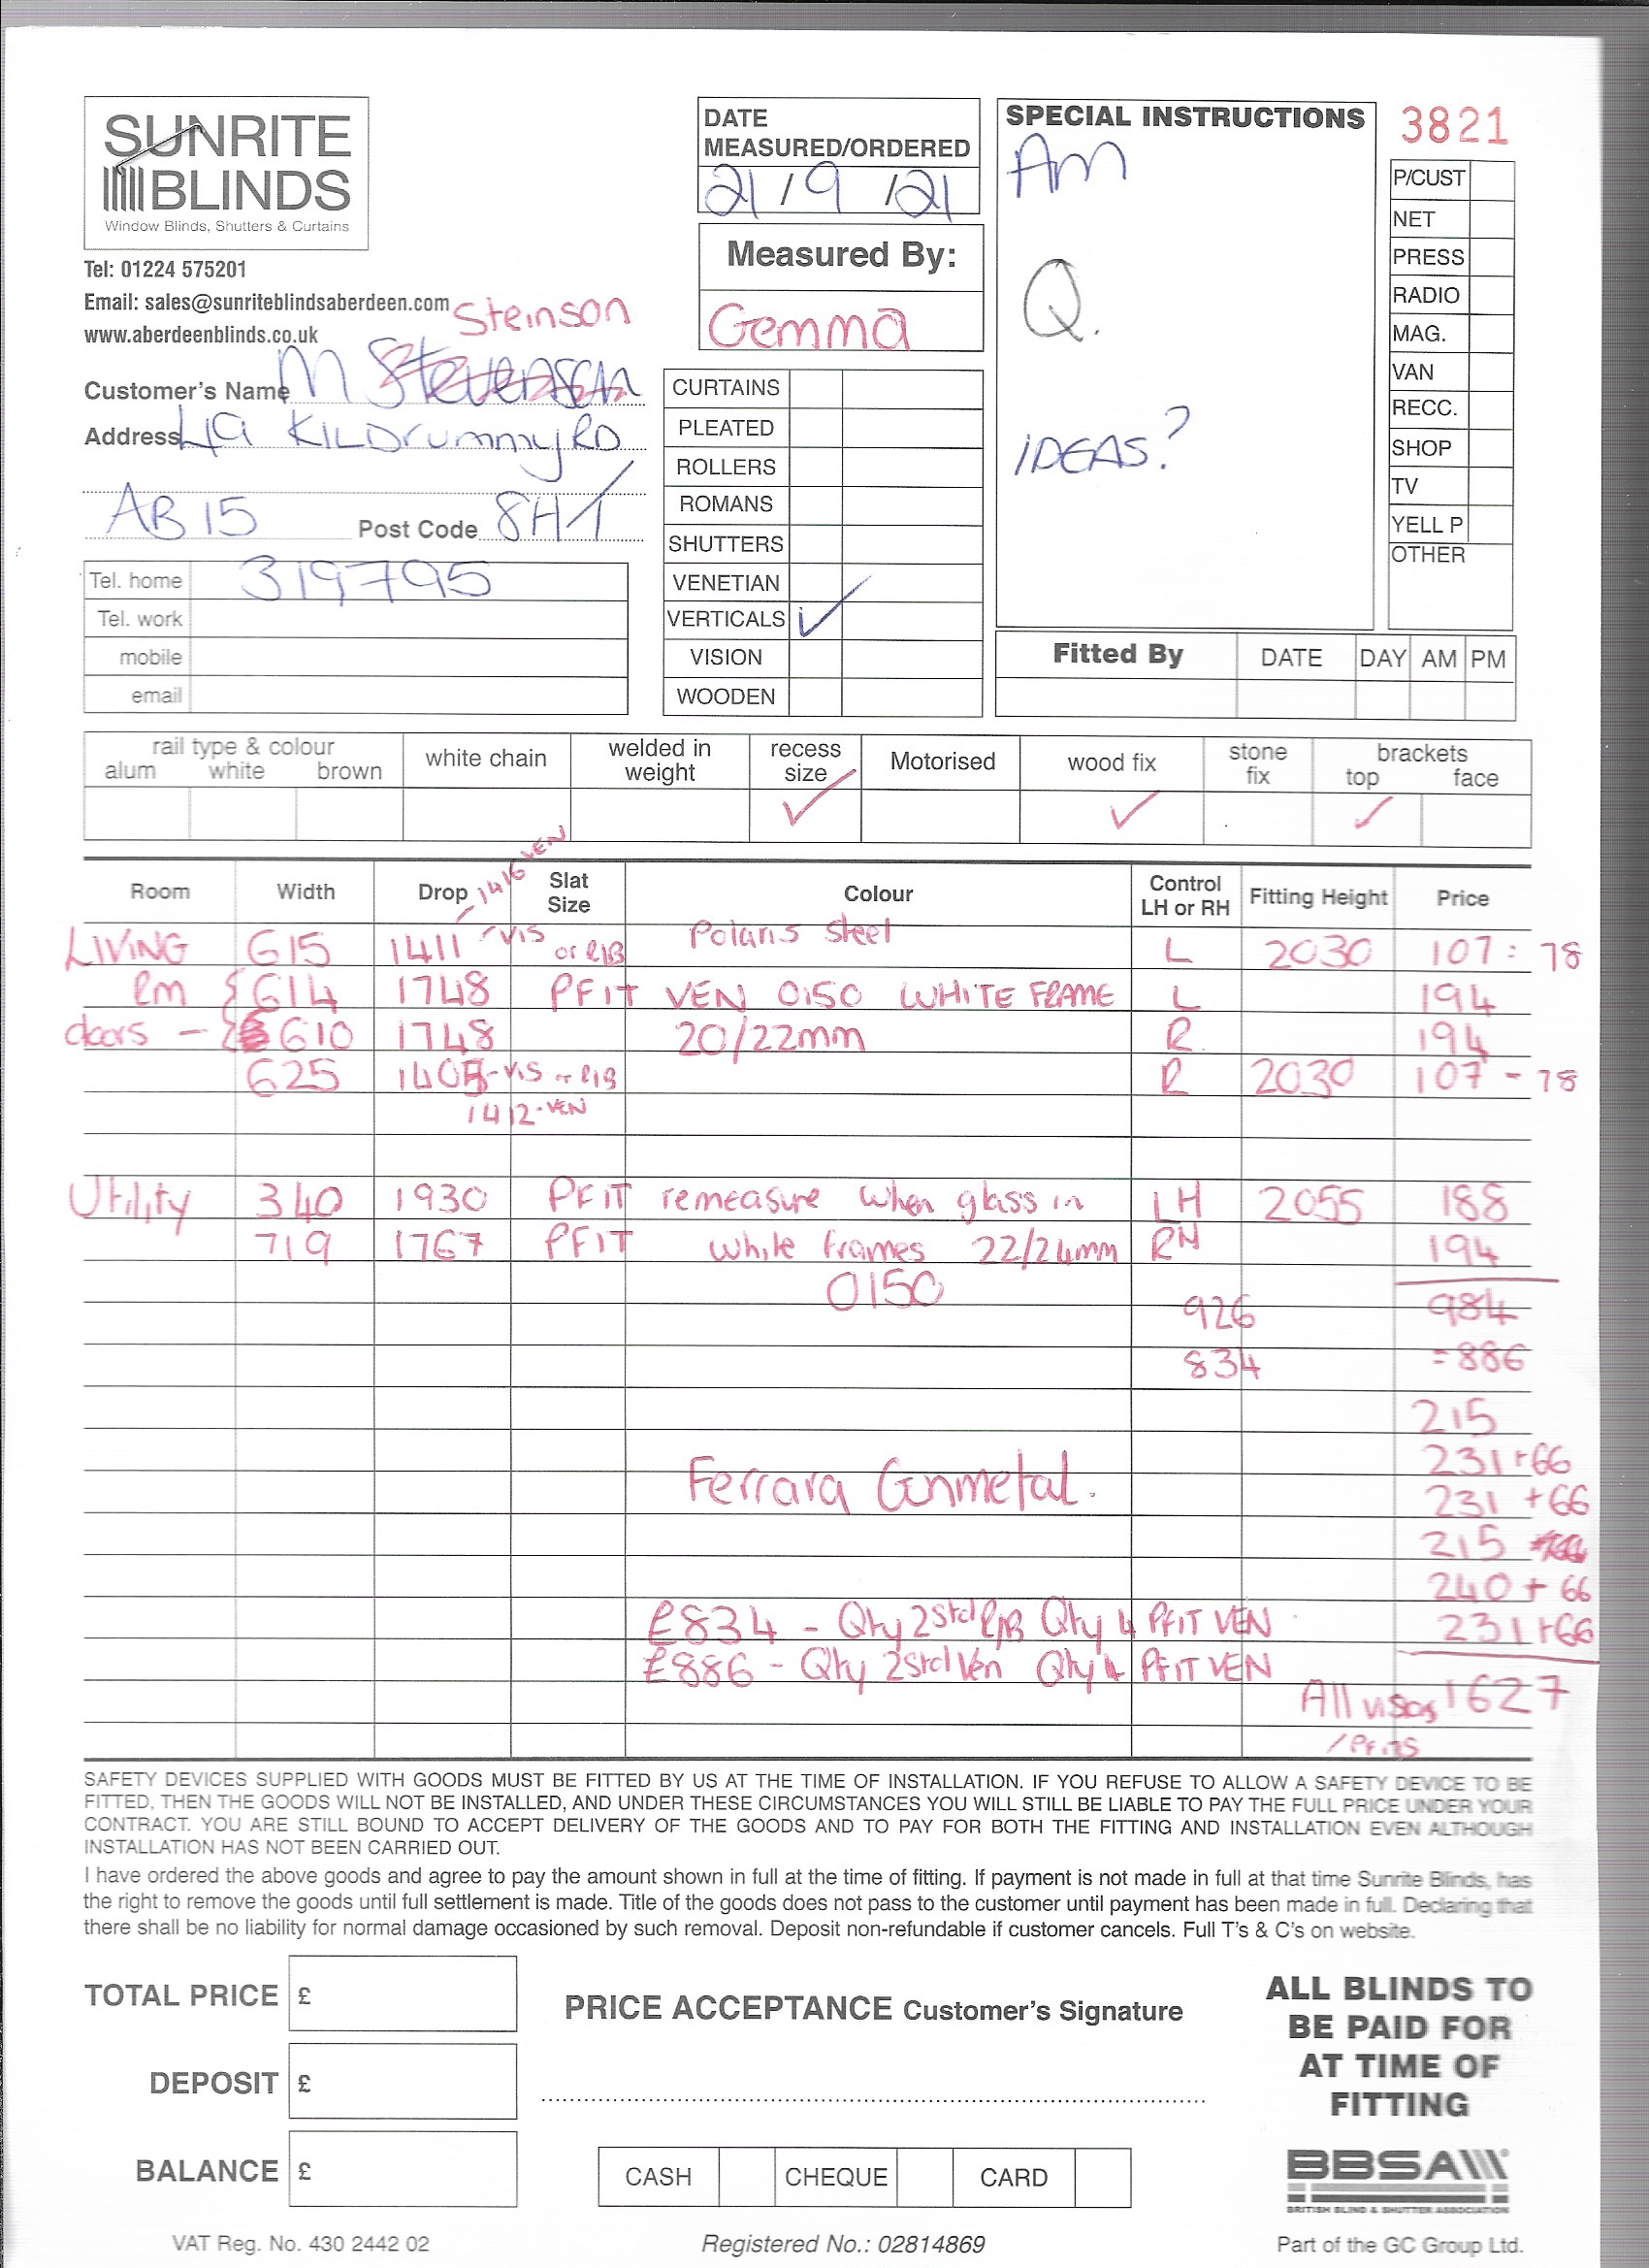 SUNRITE
BLINDS
Window Blinds, Shutters & Curtains
Tel: 01224 575201
Email: sales@sunriteblindsaberdeen.com
www.aberdeenblinds.co.uk
Steinson
Customer's Name M Stevenson
Address 49 KILDrummy RD
AB15 Post Code 8H
Tel. home 319795
Tel. work
mobile
email
DATE
MEASURED/ORDERED
21/9/21
Measured By:
Gemma
CURTAINS
PLEATED
ROLLERS
ROMANS
SHUTTERS
VENETIAN
VERTICALS ✓
VISION
WOODEN
SPECIAL INSTRUCTIONS
Am
Q.
IDEAS?
3821
P/CUST
NET
PRESS
RADIO
MAG.
VAN
RECC.
SHOP
TV
YELL P
OTHER
Fitted By DATE DAY AM PM
rail type & colour white chain welded in weight recess size Motorised wood fix stone fix brackets
alum white brown top face
✓ ✓ ✓
1416 VEN
Room Width Drop Slat Size Colour Control LH or RH Fitting Height Price
LIVING 615 1411 - VIS or R/B Polaris Steel L 2030 107: 78
Rm 614 1748 PFIT VEN 0150 WHITE FRAME L 194
doors - 610 1748 20/22mm R 194
625 1405 - VIS or R/B R 2030 107 - 78
1412 - VEN
Utility 340 1930 PFIT remeasure when glass in LH 2055 188
719 1767 PFIT white frames 22/24mm RH 194
0150
926 984
834 = 886
215
231+66
Ferrara Gunmetal.
231 +66
215
240 + 66
£834 - Qty 2 Std R/B Qty 4 PFIT VEN 231+66
£886 - Qty 2 Std Ven Qty 4 PFIT VEN
All visos 1627
/PFITS
SAFETY DEVICES SUPPLIED WITH GOODS MUST BE FITTED BY US AT THE TIME OF INSTALLATION. IF YOU REFUSE TO ALLOW A SAFETY DEVICE TO BE
FITTED, THEN THE GOODS WILL NOT BE INSTALLED, AND UNDER THESE CIRCUMSTANCES YOU WILL STILL BE LIABLE TO PAY THE FULL PRICE UNDER YOUR
CONTRACT. YOU ARE STILL BOUND TO ACCEPT DELIVERY OF THE GOODS AND TO PAY FOR BOTH THE FITTING AND INSTALLATION EVEN ALTHOUGH
INSTALLATION HAS NOT BEEN CARRIED OUT.
I have ordered the above goods and agree to pay the amount shown in full at the time of fitting. If payment is not made in full at that time Sunrite Blinds, has
the right to remove the goods until full settlement is made. Title of the goods does not pass to the customer until payment has been made in full. Declaring that
there shall be no liability for normal damage occasioned by such removal. Deposit non-refundable if customer cancels. Full T's & C's on website.
TOTAL PRICE £
DEPOSIT £
BALANCE £
PRICE ACCEPTANCE Customer's Signature
CASH CHEQUE CARD
ALL BLINDS TO
BE PAID FOR
AT TIME OF
FITTING
BBSA
BRITISH BLIND & SHUTTER ASSOCIATION
VAT Reg. No. 430 2442 02
Registered No.: 02814869
Part of the GC Group Ltd.